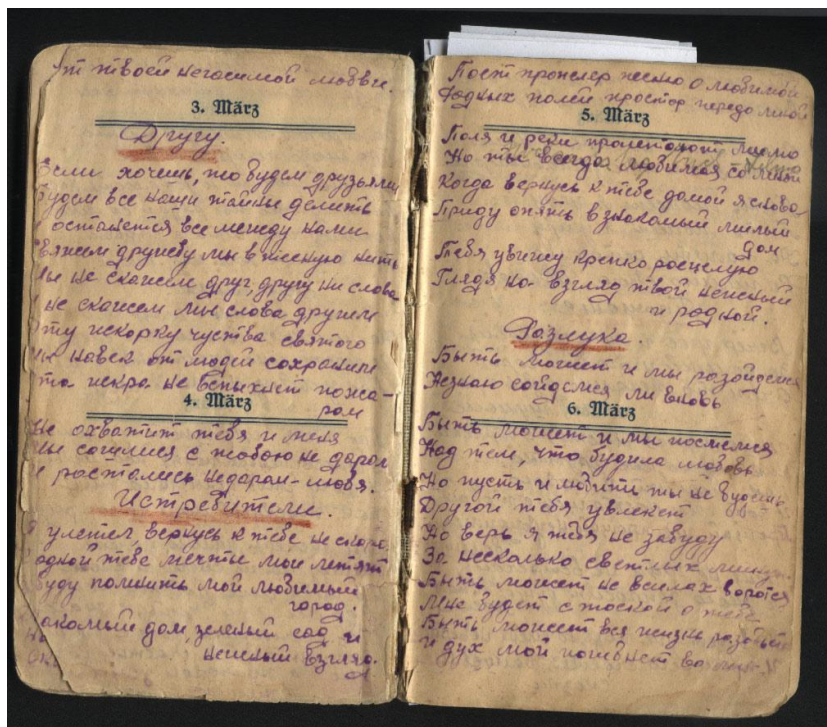 От твоей негасимой любви.
3. März
Другу.
Если хочешь, то будем друзьями
Будем все наши тайны делить
И останется все между нами
Свяжем дружбу мы в тесную нить
Мы не скажем друг, другу ни слова
И не скажем мы слова другим
Эту искорку чуства святого
Мы навек от людей сохраним
Эта искра не вспыхнет пожа-
ром
4. März
Не охватит тебя и меня
Мы сошлися с тобою не даром
И растались недаром-любя.
Истребители.
Я улетел, вернусь к тебе не скоро
одной тебе мечты мои летят
буду помнить мой любимый
город.
Знакомый дом, зеленый сад и
нежный взгляд.
Поет пропелер песню о любимой
Родных полей простор передо мной
5. März
Поля и реки пролетают мимо
Но ты всегда любимая со мной
Когда вернусь к тебе домой я снова
Приду опять в знакомый милый
дом
Тебя увижу крепко росцелую
Глядя на взгляд твой нежный
и родной.
Разлука.
Быть может и мы розойдемся
Незнаю сойдемся ли вновь
6. März
Быть может и мы посмеемся
Над тем, что будила любовь
Но пусть и любить ты не будешь
Другой тебя увлекет
Но верь я тебя не забуду
За несколько светлых минут
Быть может не всилах боротся
Мне будет с тоской о тебе
Быть может вся жизнь розобьется
и дух мой погибнет во